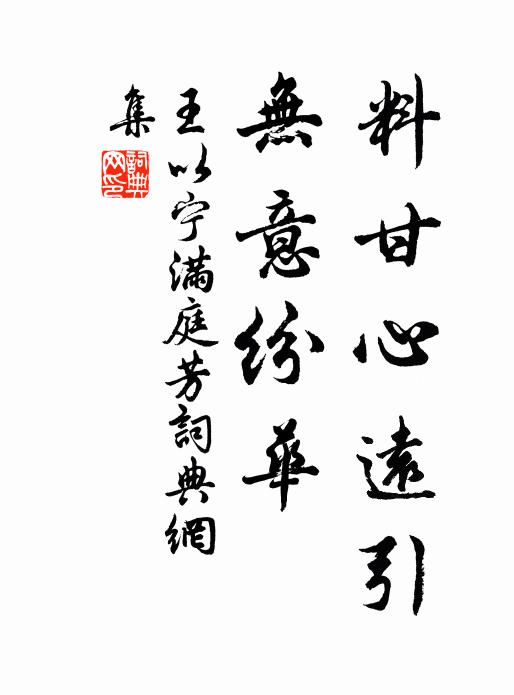 料甘心遠引
無意紛華
王以宁滿庭芳詞典網
集
詞典
网印